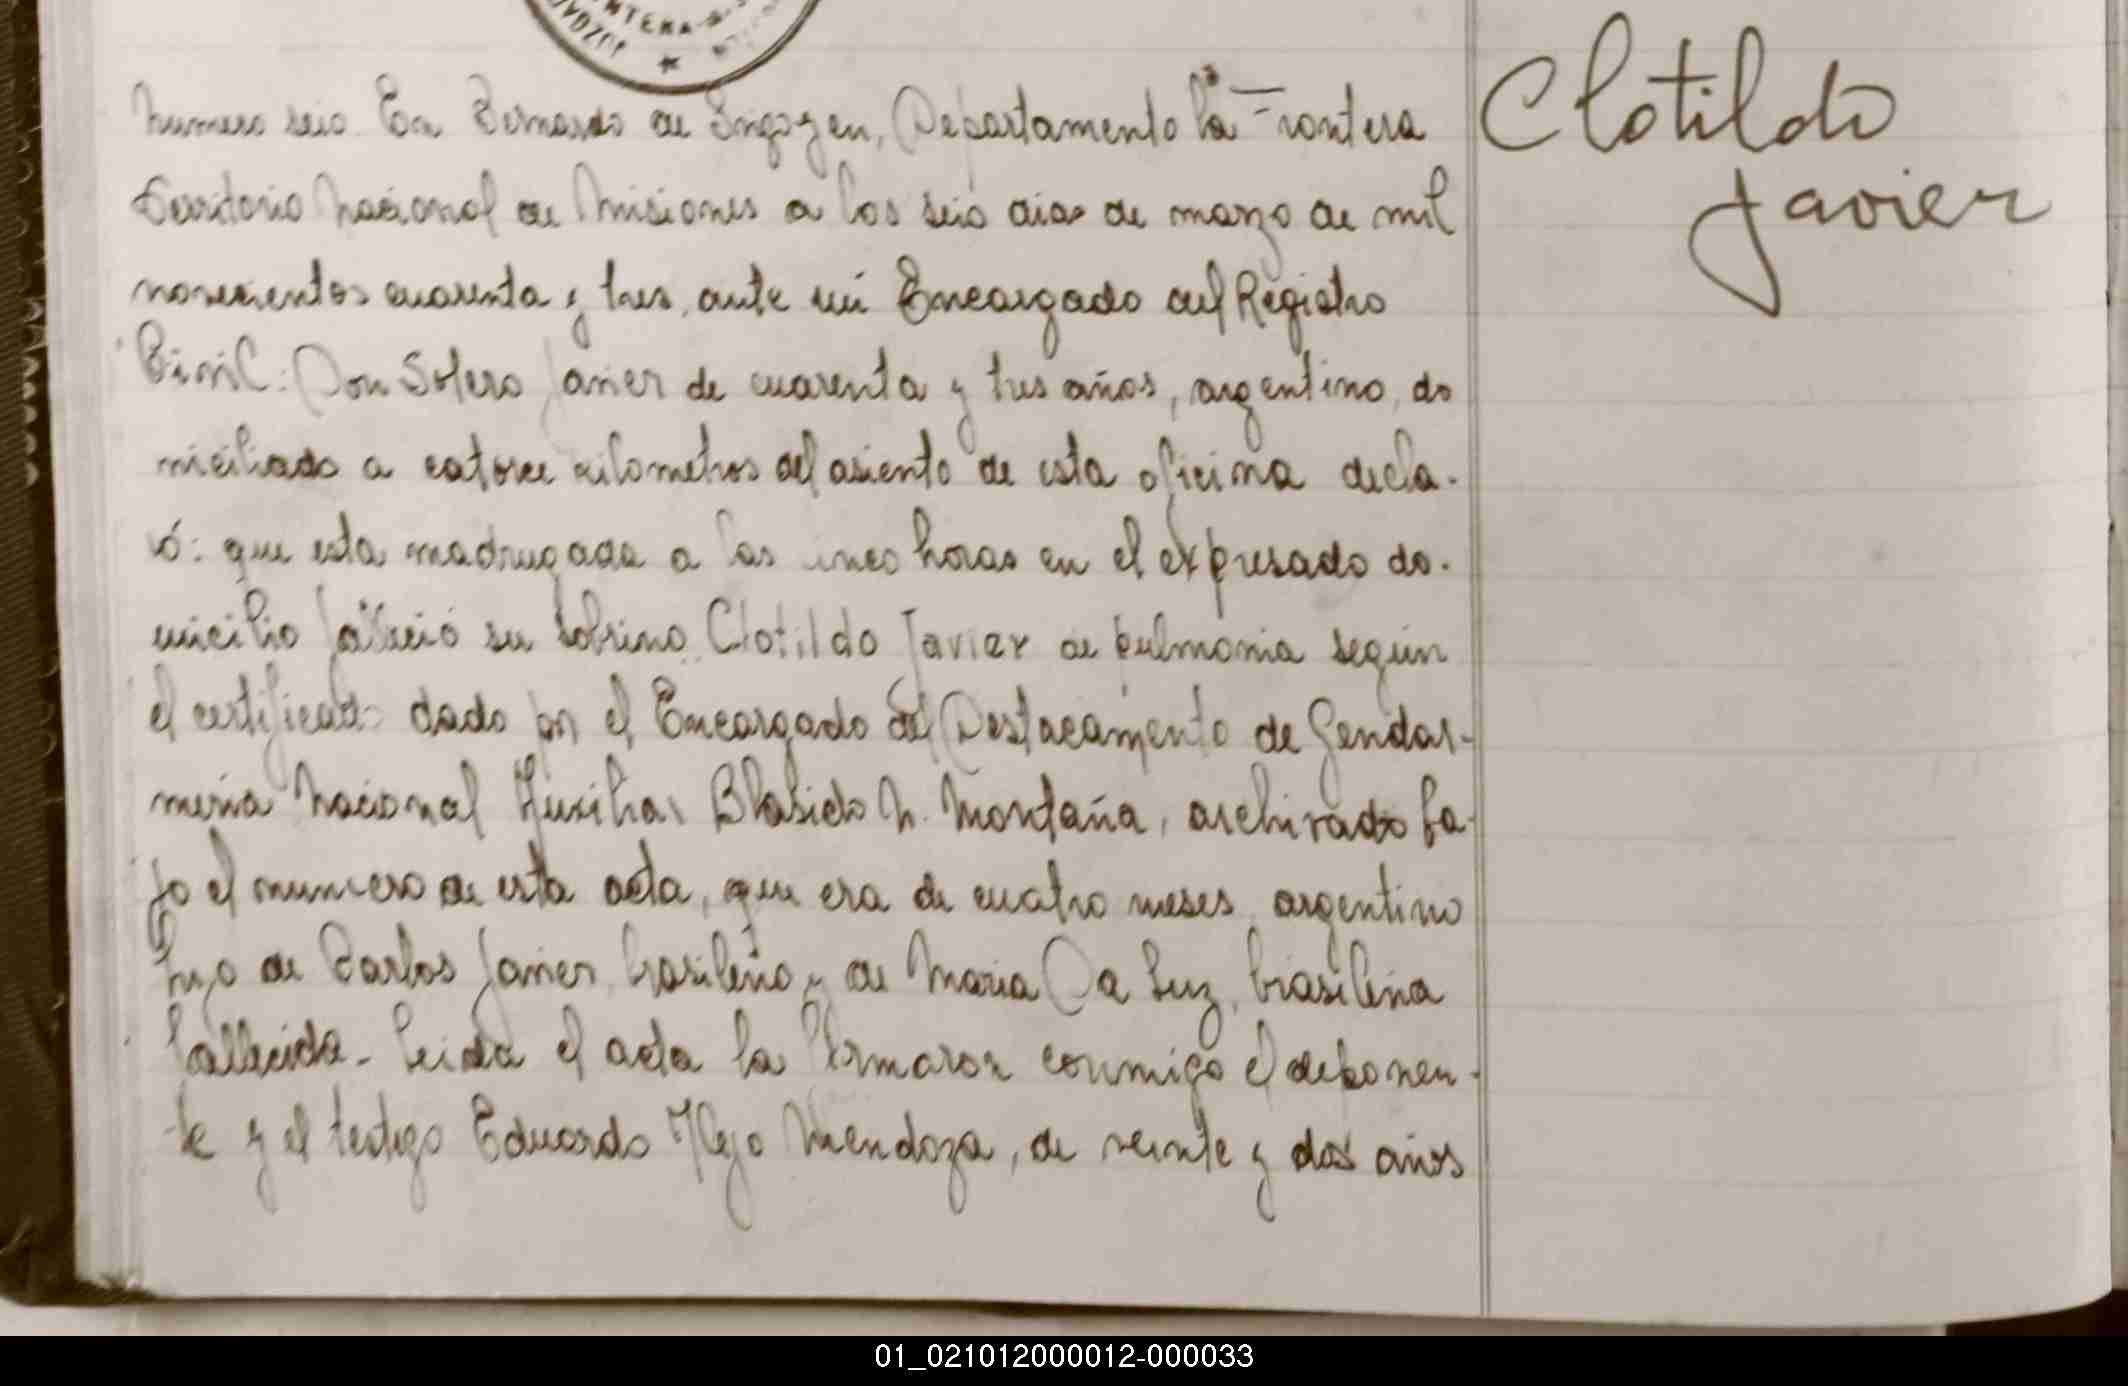 Numero seis En Bernardo de Irigoyen, Departamento la Frontera
Territorio Nacional de Misiones a los seis dias de marzo de mil
novecientos cuarenta y tres, ante mi Encargado del Registro
Civil: Don Sotero Javier de cuarenta y tres años, argentino, do
miciliado a catorce kilometros del asiento de esta oficina decla-
ró: que esta madrugada a las cinco horas en el expresado do-
micilio falleció su sobrino Clotildo Javier de pulmonia según
el certificado dado por el Encargado del Destacamento de Gendar-
meria Nacional Auxiliar Blasido N. Montaña, archivado ba-
jo el numero de esta acta, que era de cuatro meses, argentino
hijo de Carlos Javier, brasileño y de Maria Da Luz, brasileña
fallecida - Leida el acta la firmaron conmigo el deponen-
te y el testigo Eduardo Alejo Mendoza, de veinte y dos años
Clotildo
Javier
01_021012000012-000033